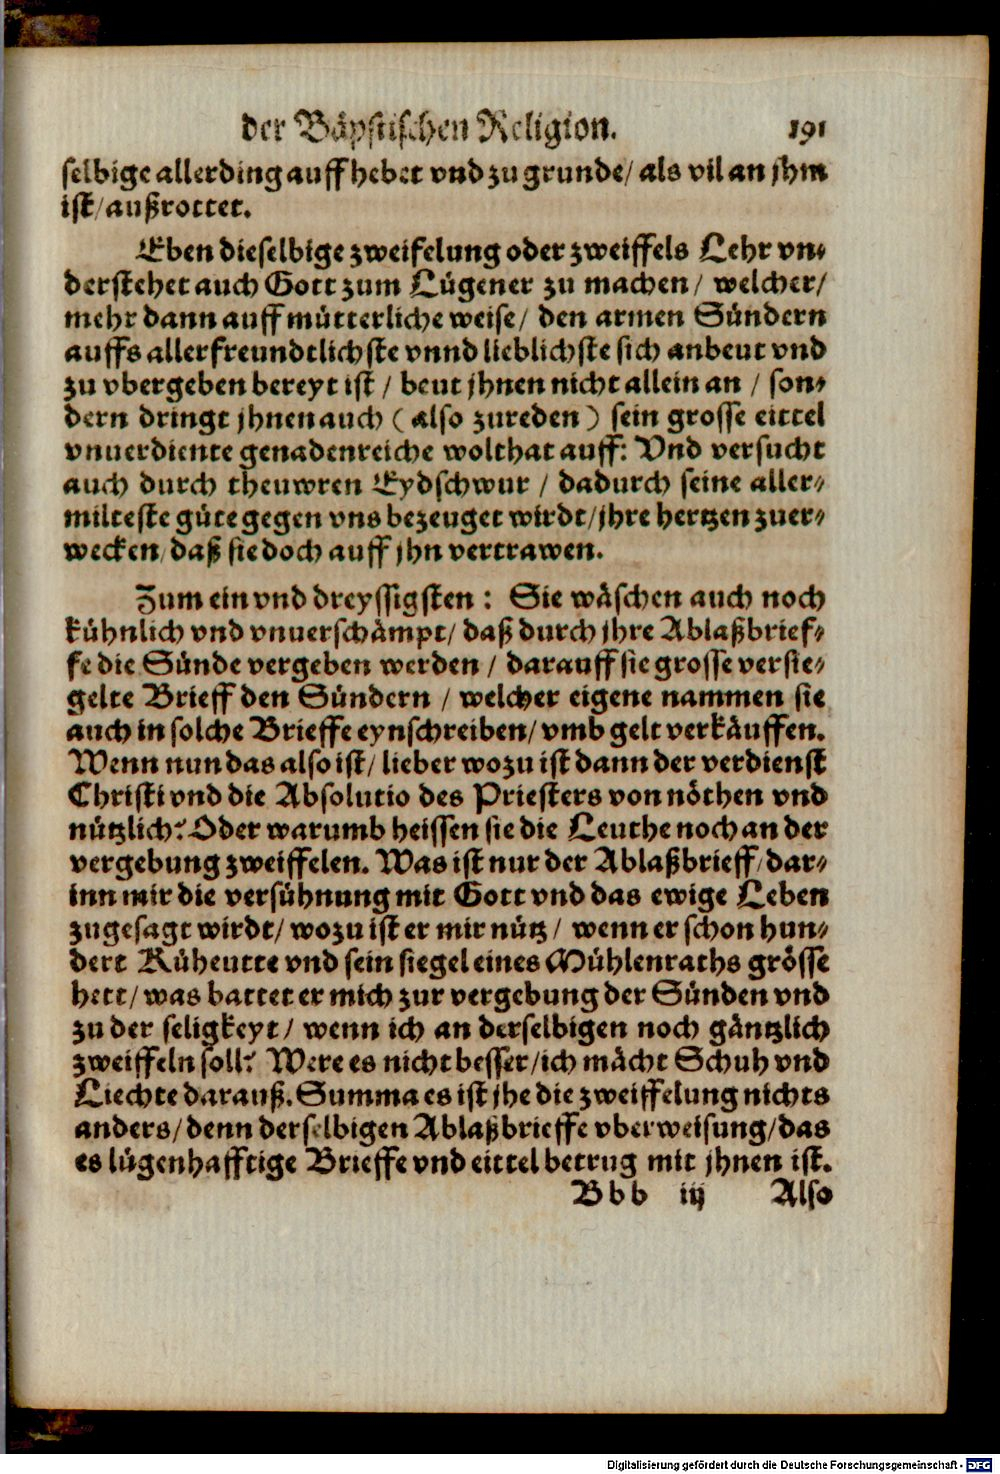 der Bäpstischen Religion. 191
selbige allerding auff hebet vnd zu grunde/ als vil an jhm
ist/ außrottet.
Eben dieselbige zweifelung oder zweiffels Lehr vn⸗
derstehet auch Gott zum Lügener zu machen/ welcher/
mehr dann auff mütterliche weise/ den armen Sündern
auffs allerfreundtlichste vnnd lieblichste sich anbeut vnd
zu vbergeben bereyt ist / beut jhnen nicht allein an / son⸗
dern dringt jhnen auch ( also zureden ) sein grosse eittel
vnuerdiente genadenreiche wolthat auff: Vnd versucht
auch durch theuwren Eydschwur / dadurch seine aller⸗
milteste güte gegen vns bezeuget wirdt/ jhre hertzen zuer⸗
wecken/ daß sie doch auff jhn vertrawen.
Zum ein vnd dreyssigsten : Sie wäschen auch noch
kühnlich vnd vnuerschämpt/ daß durch jhre Ablaßbrief⸗
fe die Sünde vergeben werden / darauff sie grosse versie⸗
gelte Brieff den Sündern / welcher eigene nammen sie
auch in solche Brieffe eynschreiben/ vmb gelt verkäuffen.
Wenn nun das also ist/ lieber wozu ist dann der verdienst
Christi vnd die Absolutio des Priesters von nöthen vnd
nützlich? Oder warumb heissen sie die Leuthe noch an der
vergebung zweiffelen. Was ist nur der Ablaßbrieff/ dar⸗
inn mir die versühnung mit Gott vnd das ewige Leben
zugesagt wirdt/ wozu ist er mir nütz/ wenn er schon hun⸗
dert Küheutte vnd sein siegel eines Mühlenraths grösse
hett/ was battet er mich zur vergebung der Sünden vnd
zu der seligkeyt/ wenn ich an derselbigen noch gäntzlich
zweiffeln soll? Were es nicht besser/ ich mächt Schuh vnd
Liechte darauß. Summa es ist jhe die zweiffelung nichts
anders/ denn derselbigen Ablaßbrieffe vberweisung/ das
es lügenhafftige Brieffe vnd eittel betrug mit jhnen ist.
Bbb iij Also
Digitalisierung gefördert durch die Deutsche Forschungsgemeinschaft - DFG